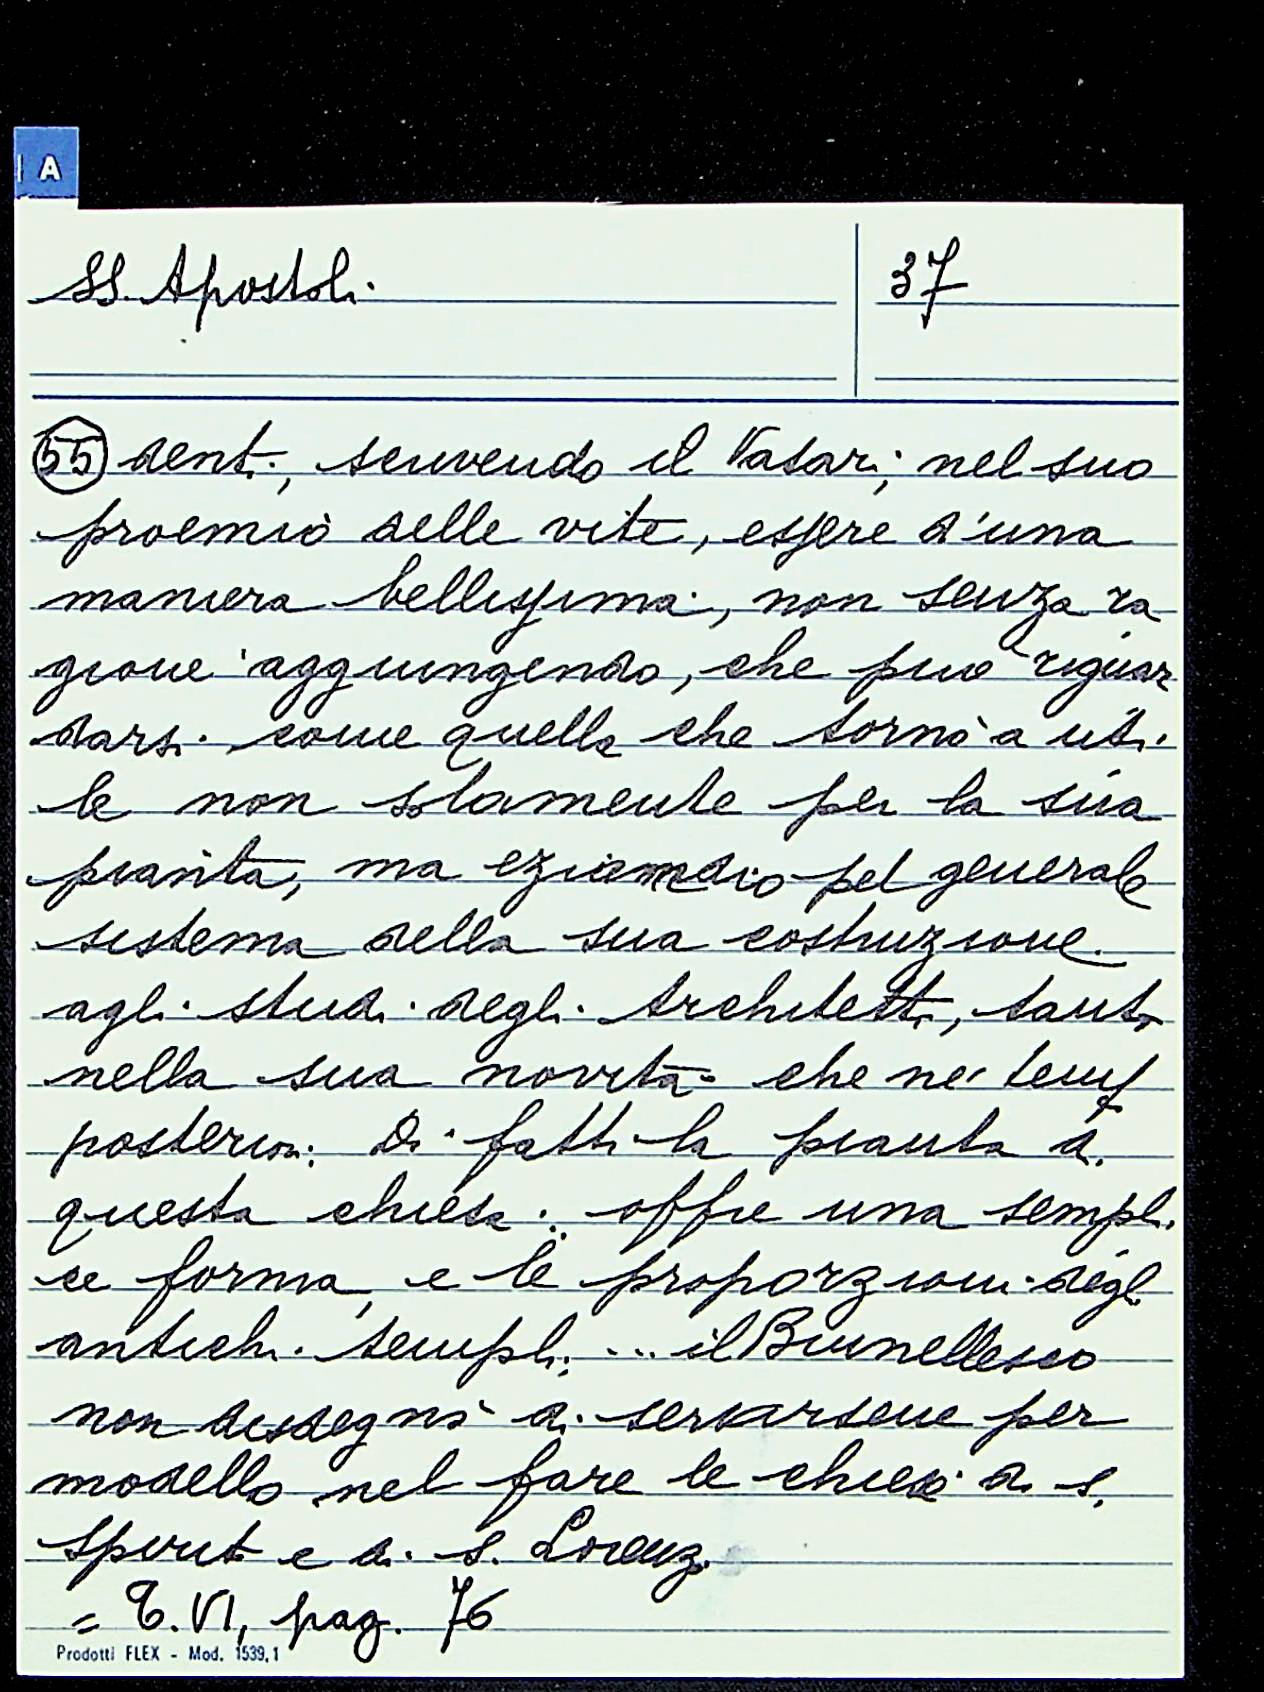 A
SS. Apostoli.
37
55 denti, scrivendo il Vasari, nel suo
proemio delle vite, essere d'una
maniera bellissima, non senza ra
gione aggiungendo, che può riguar
darsi come quella che tornò a uti
le non solamente per la sua
pianta, ma eziamdio pel generale
sistema della sua costruzione
agli studi degli Architetti, tanto
nella sua novità che nei tempi
posteriori. Di fatti la pianta di
questa chiesa ... offre una sempli
ce forma, e le proporzioni degli
antichi templi, ... il Brunellesco
non disdegnò di servirsene per
modello nel fare le chiese di s.
Spirito e di s. Lorenzo.
= T. VI, pag. 76
Prodotti FLEX - Mod. 1539,1